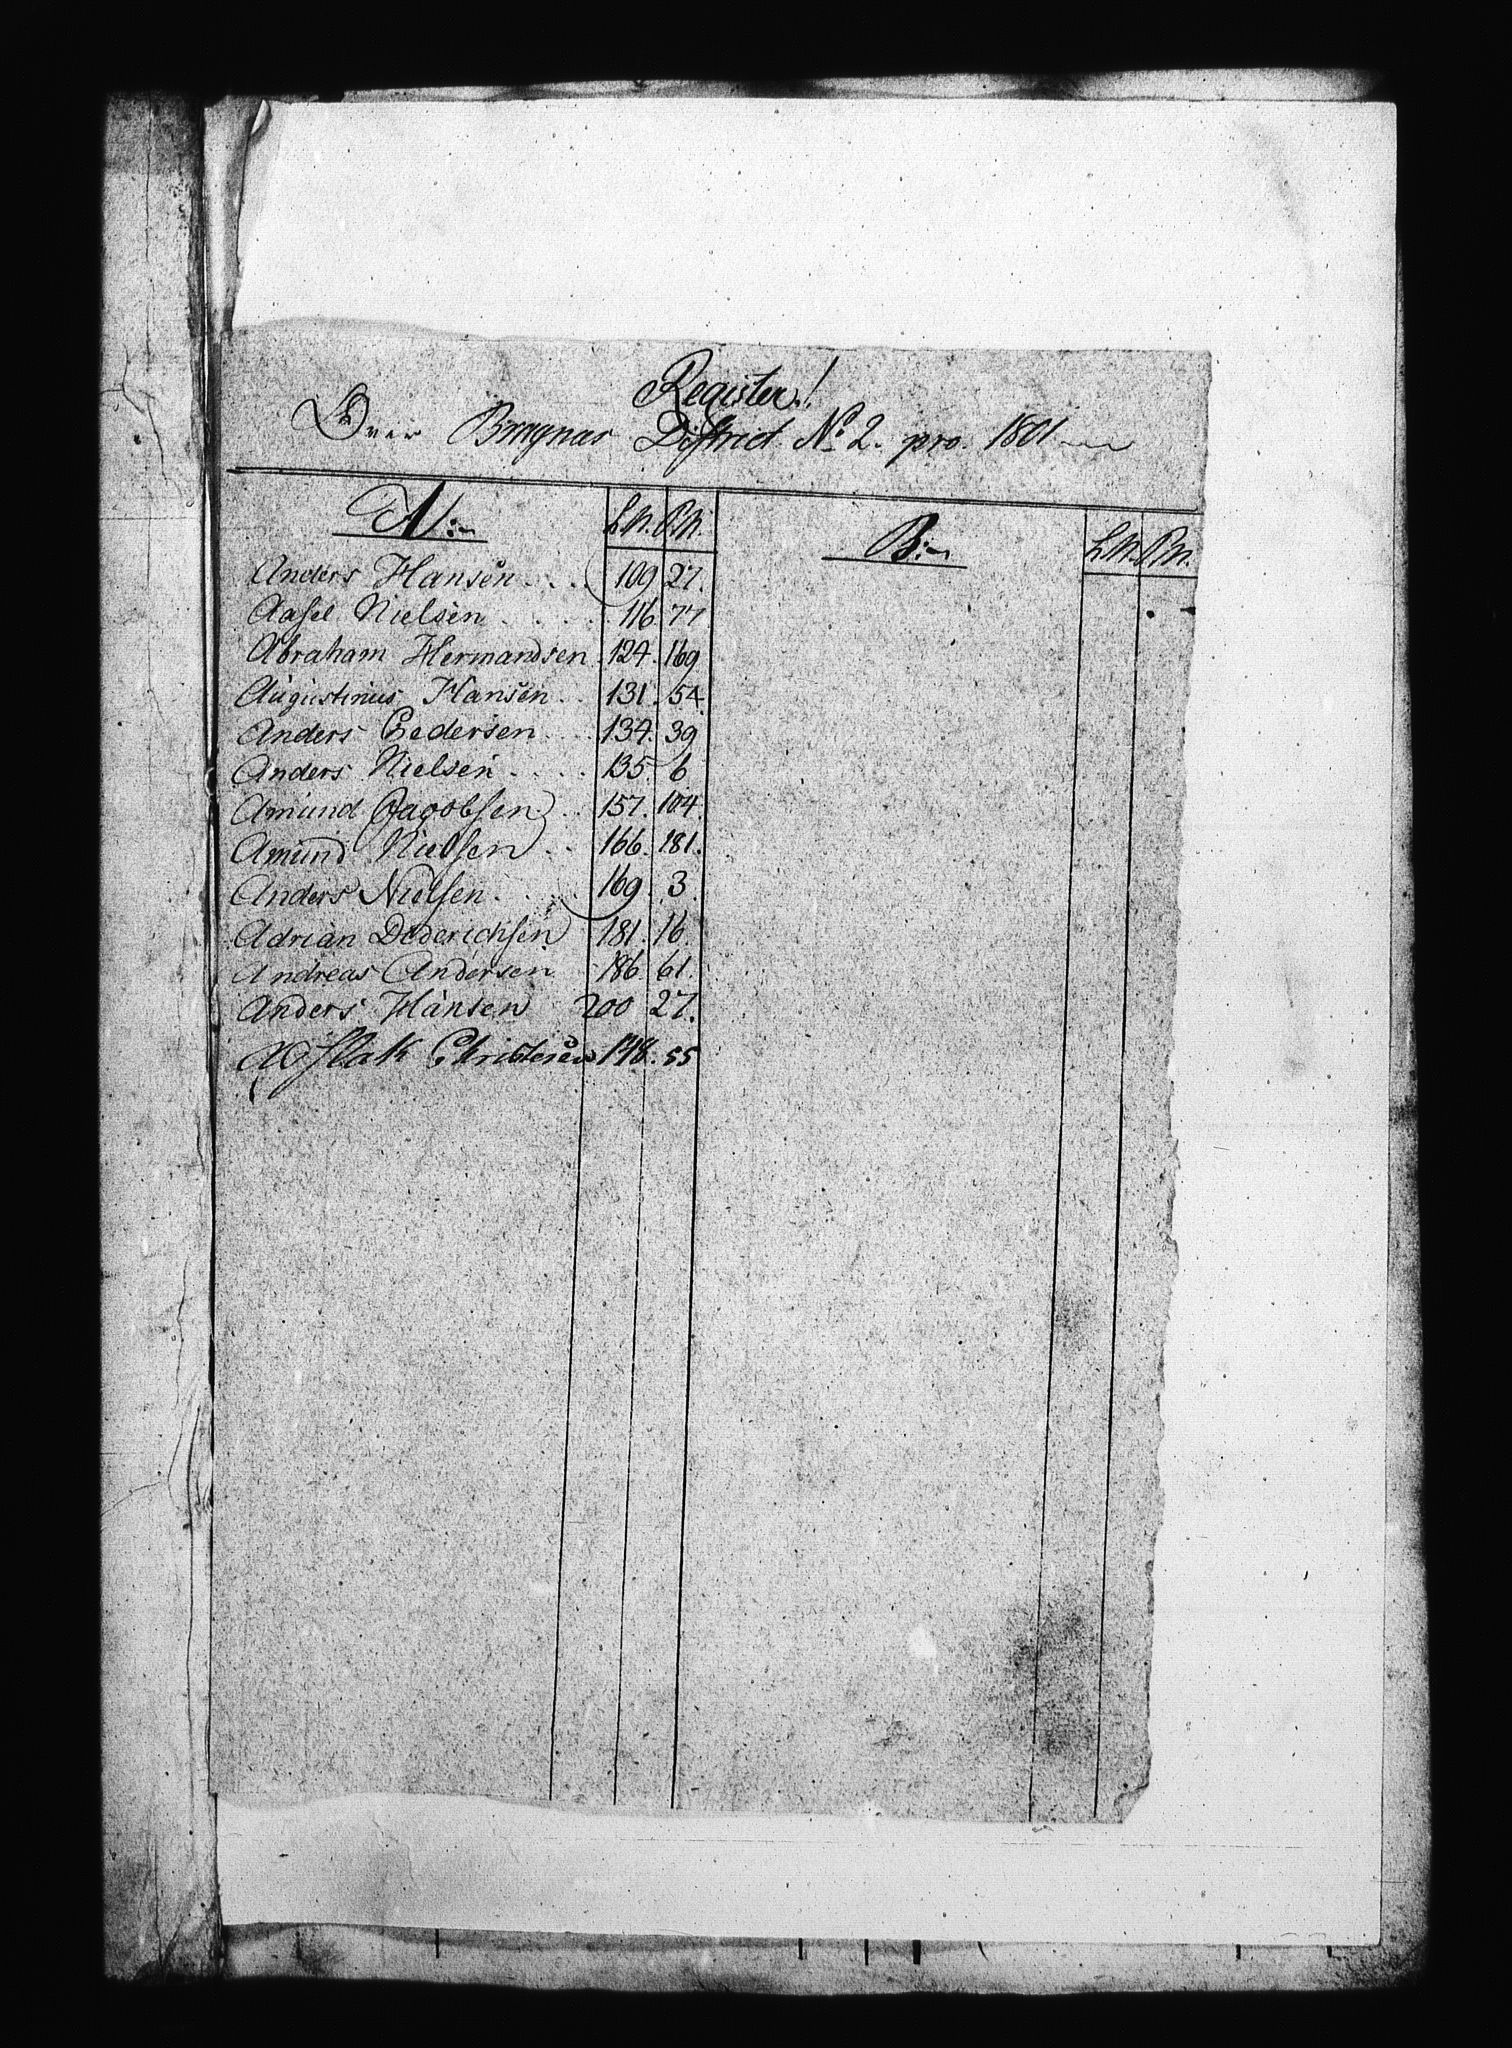 Register!
Over Bragnas District No 2. pro. 1801
A:~ L.N. P.N. B:~ L.N. P.N.
Anders Hansen.... 109 27.
Aasel Nielsen ..... 116. 77
Abraham Hermandsen. 124. 169
Augustinus Hansen .. 131. 54.
Anders Pedersen ... 134. 39
Anders Nielsen .... 135. 6
Amund Jagobsen .. 157. 104.
Amund Nielsen .. 166. 181.
Anders Nielsen .... 169. 3.
Adrian Dederichsen 181. 16.
Andreas Andersen 186 61.
Anders Hansen 200 27.
Aslak Christensen 148. 55